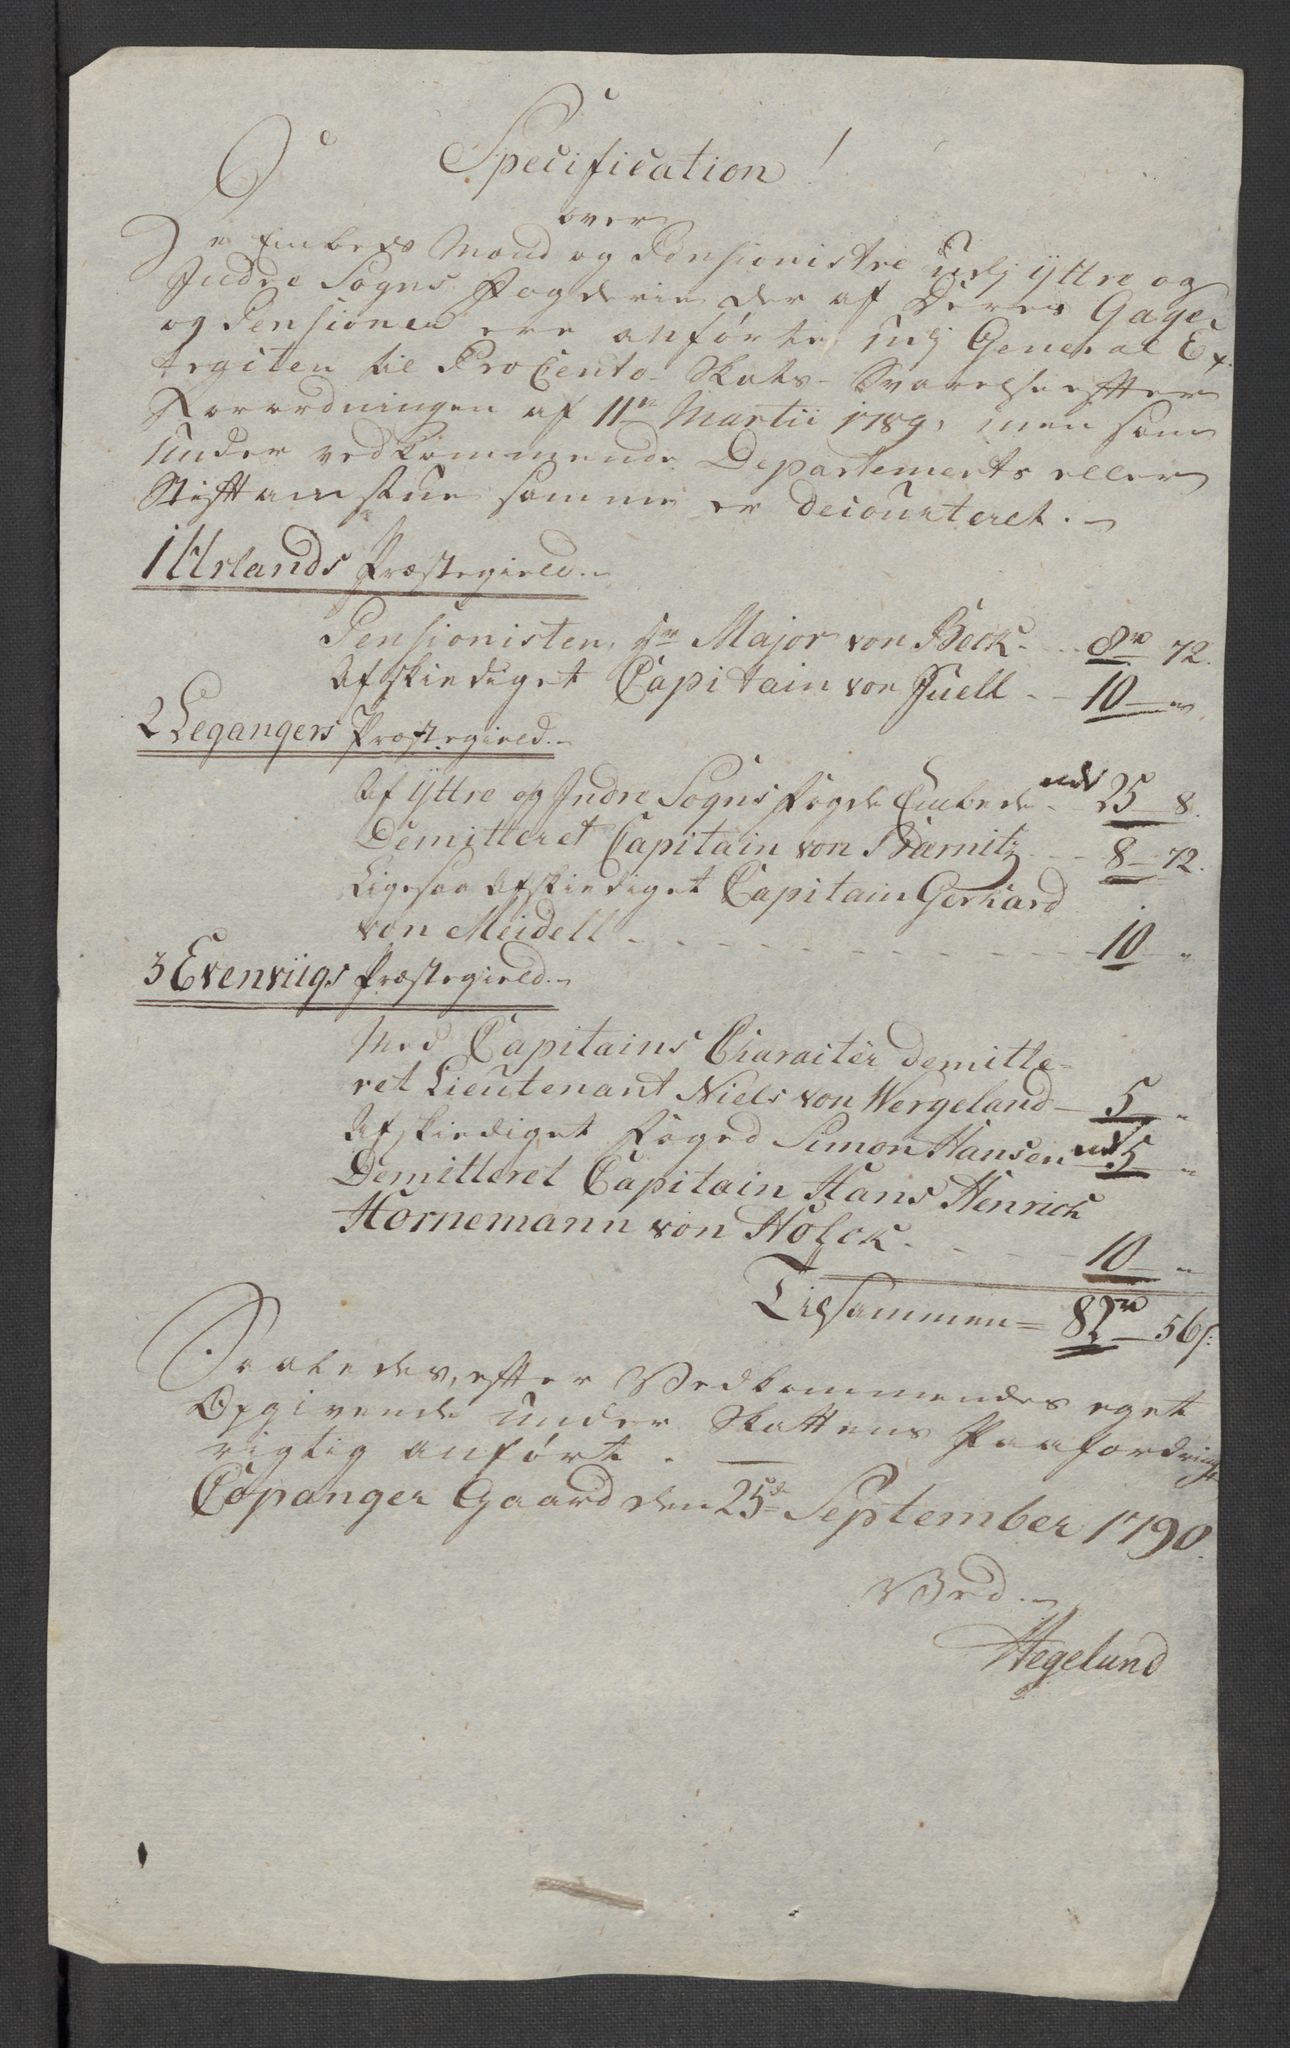 Specification
over
De Embeds Mænd og Pensionistre udj Yttre og
Indre Sogns Fogderie der af Deres Gager
og Pensioner ere anførte udj General Ex-
tragten til ProCento-Skats-Svarelse efter
Forordningen af 11te Martii 1789, men som
under vedkommende Departements eller
Stiftamstue samme er decourteret.
1 Urlands Præstegield.
Pensionisten, Hr Major von Beck. 8rd 72.
Afskiediget Capitain von Juell - 10 - "
2 Leganger Præstegield.
Af Yttre og Indre Sogns Fogde Embede 25 8.
Demitteret Capitain von Bärnitz 8 - 72.
Ligesaa afskiediget Capitain Gerhard
von Meidell - 10 "
3 Evenviigs Præstegield.
Med Capitains Charactér demitte-
ret Lieutenant Niels von Wergeland - 5 "
Afskiediget Foged Simon Hansen 5 "
Demitteret Capitain Hans Henrich
Hornemann von Holck. 10 - "
Tilsammen = 82rd 56s:
Saaledes, efter Vedkommendes eget
Opgivende under Skattens Paafordring
rigtig anført.
Copanger Gaard den 25de September 1790.
Hegelund